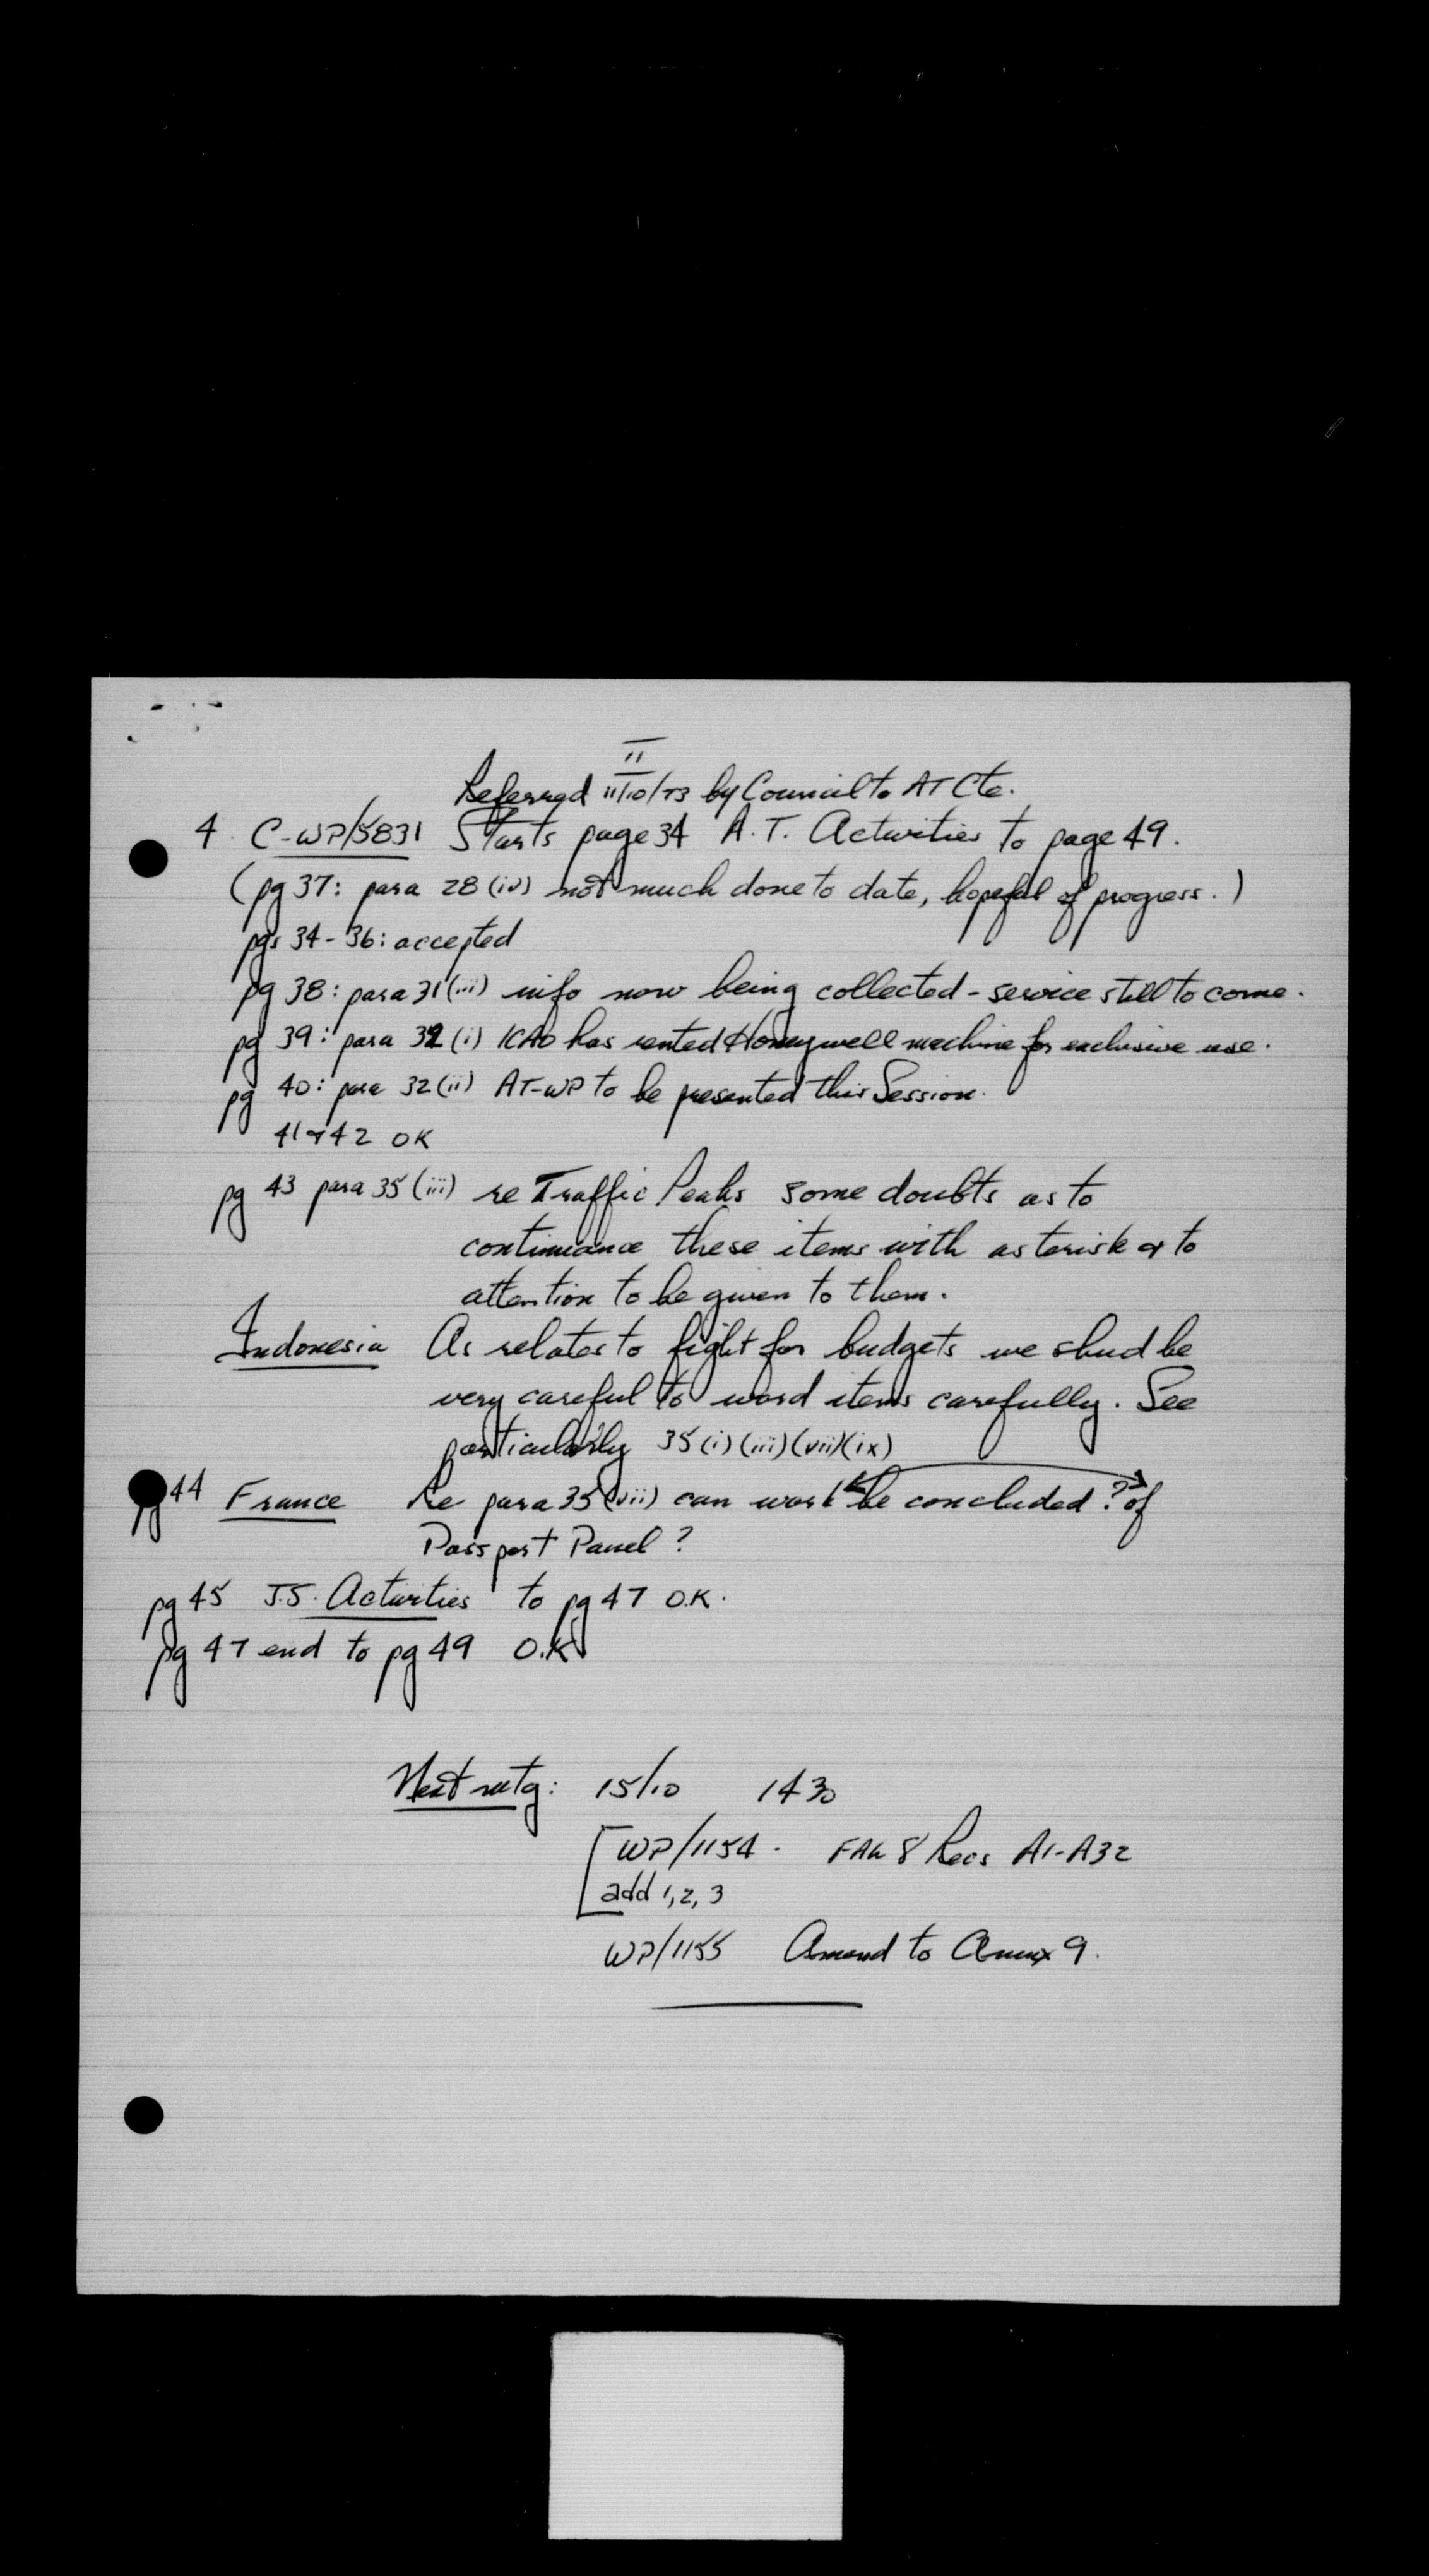 II
Referred 11/10/73 by Council to AT Cte.
4 C-WP/5831 Starts page 34 A.T. Activities to page 49.
(pg 37: para 28 (iv) not much done to date, hopeful of progress.)
pgs 34-36: accepted
pg 38: para 31 (iii) info now being collected - service still to come.
pg 39: para 32 (i) ICAO has rented Honeywell machine for exclusive use.
pg 40: para 32 (ii) AT-WP to be presented this Session.
41 & 42 OK
pg 43 para 35 (iii) re Traffic Peaks some doubts as to
continuance these items with asterisk & to
attention to be given to them.
Indonesia As relates to fight for budgets we shud be
very careful to word items carefully. See
particularly 35 (i) (iii) (vii) (ix)
pg 44 France Re para 35 (vii) can work be concluded? of
Passport Panel?
pg 45 J.S. Activities to pg 47 O.K.
pg 47 end to pg 49 O.K.
Next mtg: 15/10 1430
WP/1154. FAL 8 Recs A1-A32
add 1, 2, 3
WP/1155 Amend to Annex 9.